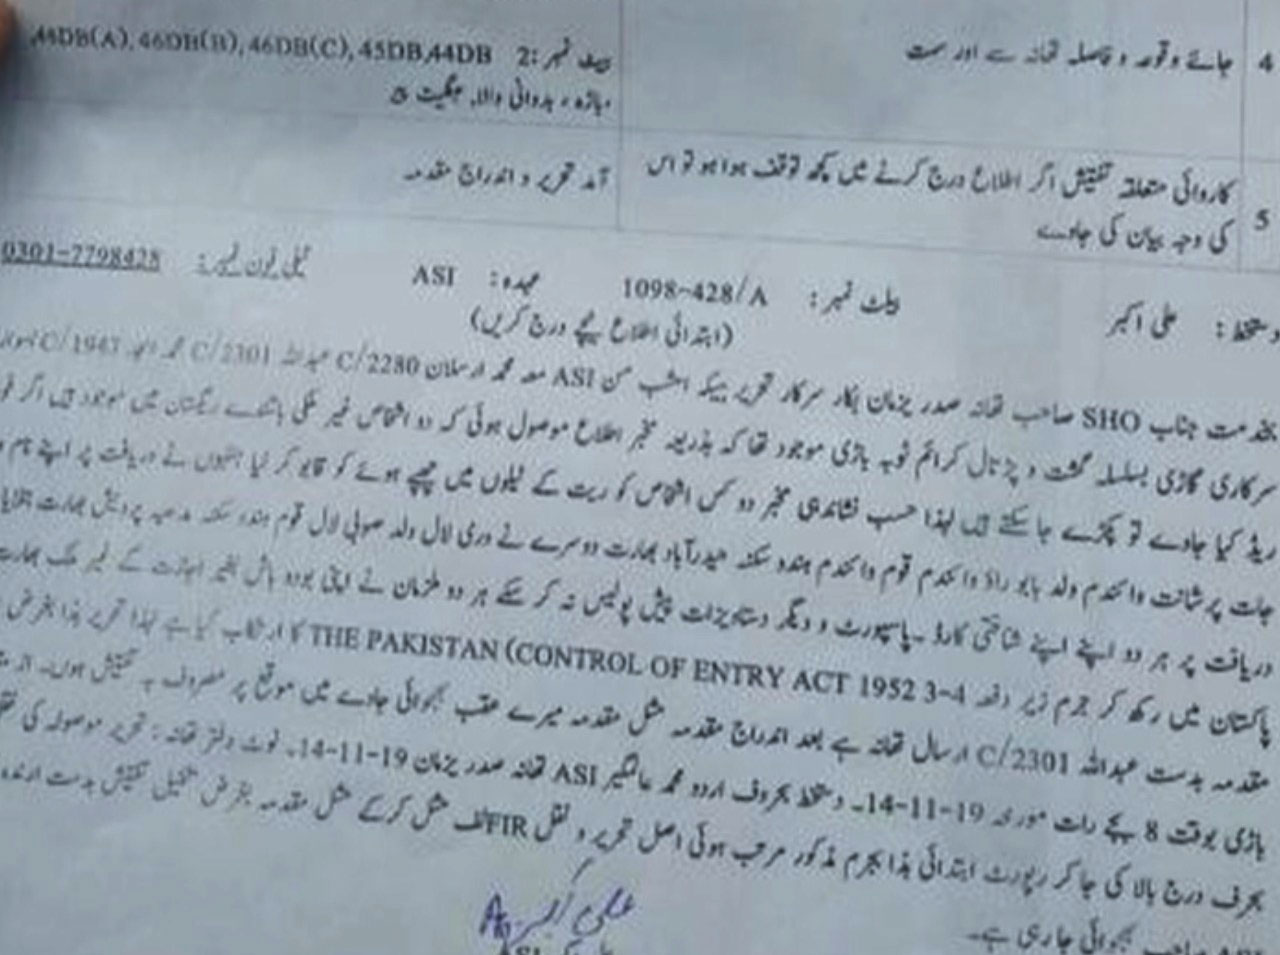 4 جائے وقوعہ و فاصلہ تھانہ سے اور سمت
بیٹ نمبر :2 46DB(A), 46DB(B), 46DB(C), 45DB,44DB
5 کاروائی متعلقہ تفتیش اگر اطلاع درج کرنے میں کچھ توقف ہوا ہو تو اس
کی وجہ بیان کی جاوے
آمد تحریر و اندراج مقدمہ
دستخط : علی اکبر بیلٹ نمبر : 1098-428/A عہدہ : ASI ٹیلی فون نمبر : 0301-7798428
(ابتدائی اطلاع نیچے درج کریں)
بخدمت جناب SHO صاحب تھانہ صدر یزمان بکار سرکار تحریر ہیکہ امشب من ASI معہ محمد ارسلان C/2280 عبداللہ C/2301 محمد C/1947
سرکاری گاڑی بسلسلہ گشت و پڑتال کرائم ٹوبہ بازی موجود تھا کہ بذریعہ مخبر اطلاع موصول ہوئی کہ دو اشخاص غیر ملکی باشندے ریگستان میں موجود ہیں اگر
ریڈ کیا جاوے تو پکڑے جا سکتے ہیں لہذا حسب نشاندہی مخبر دو کس اشخاص کو ریت کے ٹیلوں میں چھپے ہوئے کو قابو کر لیا جنہوں نے دریافت پر اپنے نام
جات پرشانت وائندم ولد بابو راؤ وائندم قوم وائندم ہندو سکنہ حیدرآباد بھارت دوسرے نے وری لال ولد صوبی لال قوم ہندو سکنہ مدھیہ پردیش بھارت بتلایا
دریافت پر ہر دو اپنے اپنے شناختی کارڈ ۔پاسپورٹ و دیگر دستاویزات پیش پولیس نہ کر سکے ہر دو ملزمان نے اپنی بودو باش بغیر اجازت کے غیر ملک بھارت
پاکستان میں رکھ کر جرم زیر دفعہ THE PAKISTAN (CONTROL OF ENTRY ACT 1952 3-4 کا ارتکاب کیا ہے لہذا تحریر ہذا بغرض
مقدمہ بدست عبداللہ C/2301 ارسال تھانہ ہے بعد اندراج مقدمہ مثل مقدمہ میرے عقب بھجوائی جاوے میں موقع پر مصروف بہ تفتیش ہوں۔ از
بازی بوقت 8 بجے رات مورخہ 14-11-19۔ دستخط بحروف اردو محمد عالمگیر ASI تھانہ صدر یزمان 14-11-19۔ نوٹ دفتر تھانہ : تحریر موصولہ کی
بحرف درج بالا کی جا کر رپورٹ ابتدائی ہذا بجرم مذکور مرتب ہوئی اصل تحریر و نقل FIR لف مثل کر کے مثل مقدمہ بغرض تکمیل تفتیش بدست آرندہ
بھجوائی جا رہی ہے۔
علی اکبر
ASI